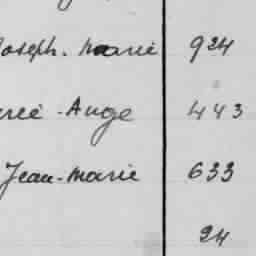 Joseph. Marie 924
-Ange 443
Jean-Marie 633
24